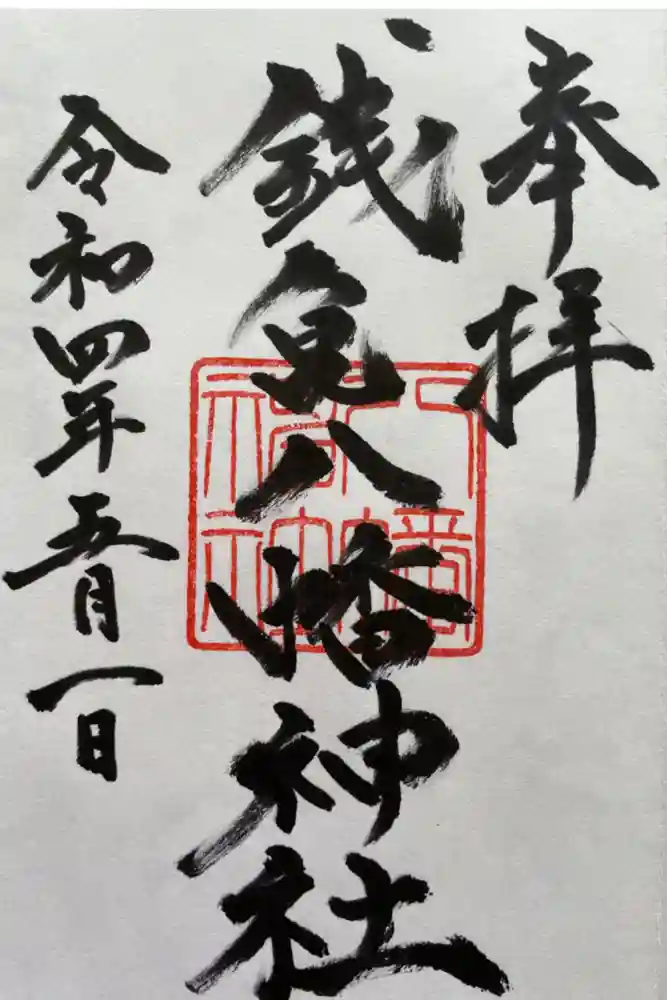 奉拝
銭亀八幡神社
八幡
神社
令和四年五月一日